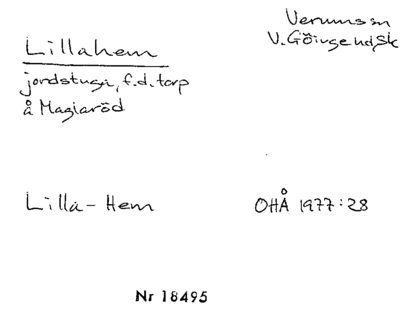 Lillahem
Verums sn
V. Göinge hd, Sk
jordstuga, f.d. torp
å Maglaröd
Lilla-Hem
OHÅ 1977:28
Nr 18495